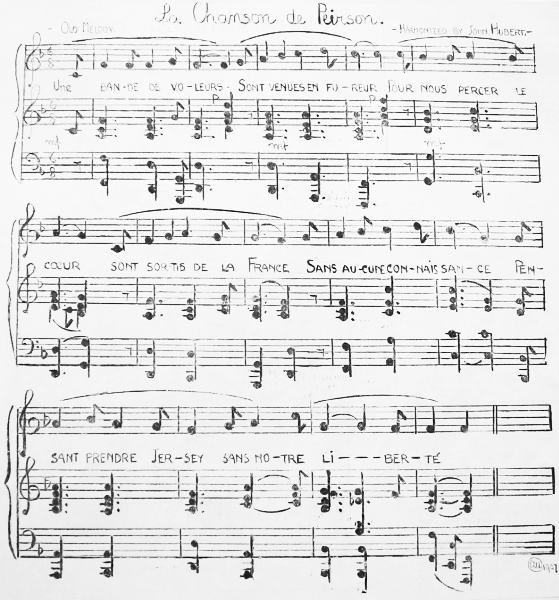 La Chanson de Peirson.
- OLD MELODY. - - HARMONIZED BY JOHN HUBERT. -
UNE BAN-DE DE VO-LEURS. SONT VENUES EN FU-REUR POUR NOUS PERCER LE
P P
mf mf mf
CŒUR SONT SOR-TIS DE LA FRANCE SANS AU-CUNE CON-NAIS SAN-CE PEN-
SANT PRENDRE JER-SEY SANS NO-TRE LI----BER-TÉ